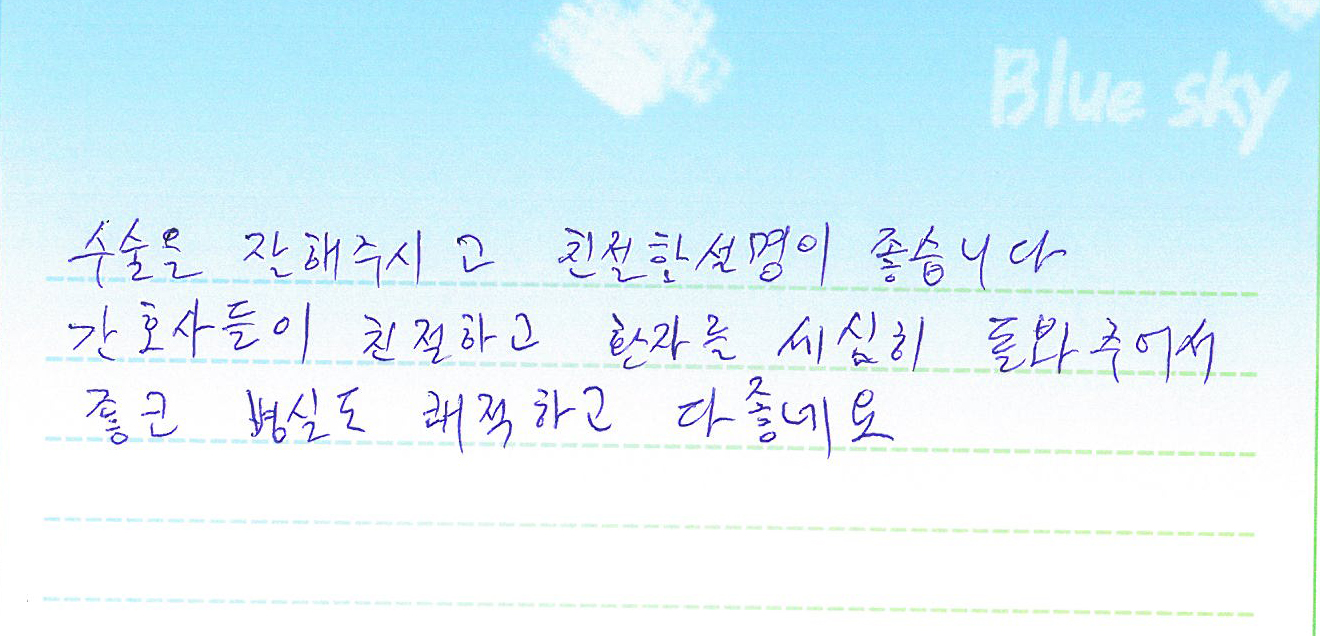 Blue sky
수술을 잘해주시고 친절한설명이 좋습니다
간호사들이 친절하고 환자를 세심히 돌봐주어서
좋고 병실도 쾌적하고 다좋네요